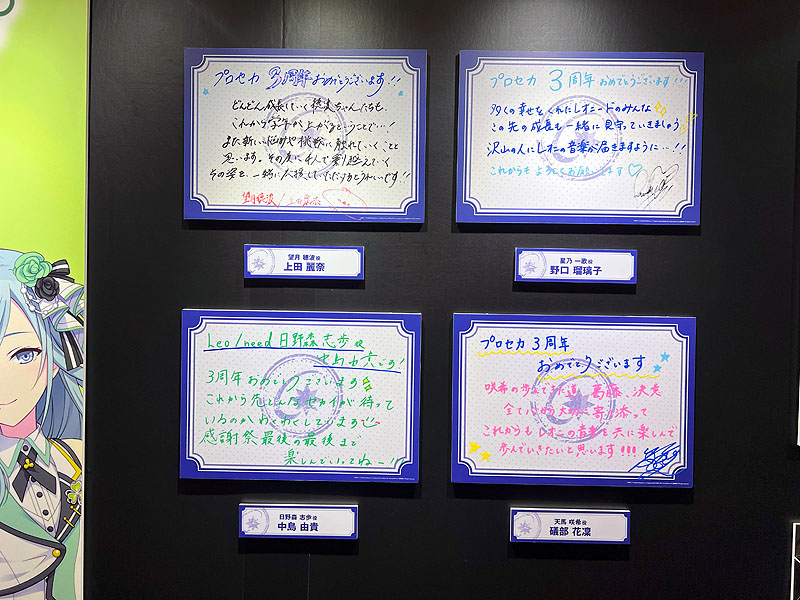 プロセカ 3周年 おめでとうございます!!
どんどん成長していく穂波ちゃんたちも、
これから学年が上がるということで…!
また新しい悩みや機会に触れていくことと
思います。その度に4人で乗り越えていく
その姿を、一緒に応援していただけるとうれしいです!!
望月穂波/上田麗奈
望月 穂波役
上田 麗奈
プロセカ 3周年 おめでとうございます!!!
多くの幸せをくれたレオニードのみんな
この先の成長も一緒に見守っていきましょう
沢山の人にレオニの音楽が届きますように…!!
これからもよろしくお願いします♡
星乃 一歌役
野口 瑠璃子
Leo/need 日野森志歩 役
中島由貴です!
3周年おめでとうございます
これから先どんなセカイが待って
いるのかわくわくしています
感謝祭最後の最後まで
楽しんでいってねー!!
日野森 志歩役
中島 由貴
プロセカ 3周年
おめでとうございます
咲希の歩んできた道、葛藤、決意
全てに心から大切に寄り添って
これからもレオニの音楽を共に楽しんで
歩んでいきたいと思います!!!
天馬 咲希役
礒部 花凜